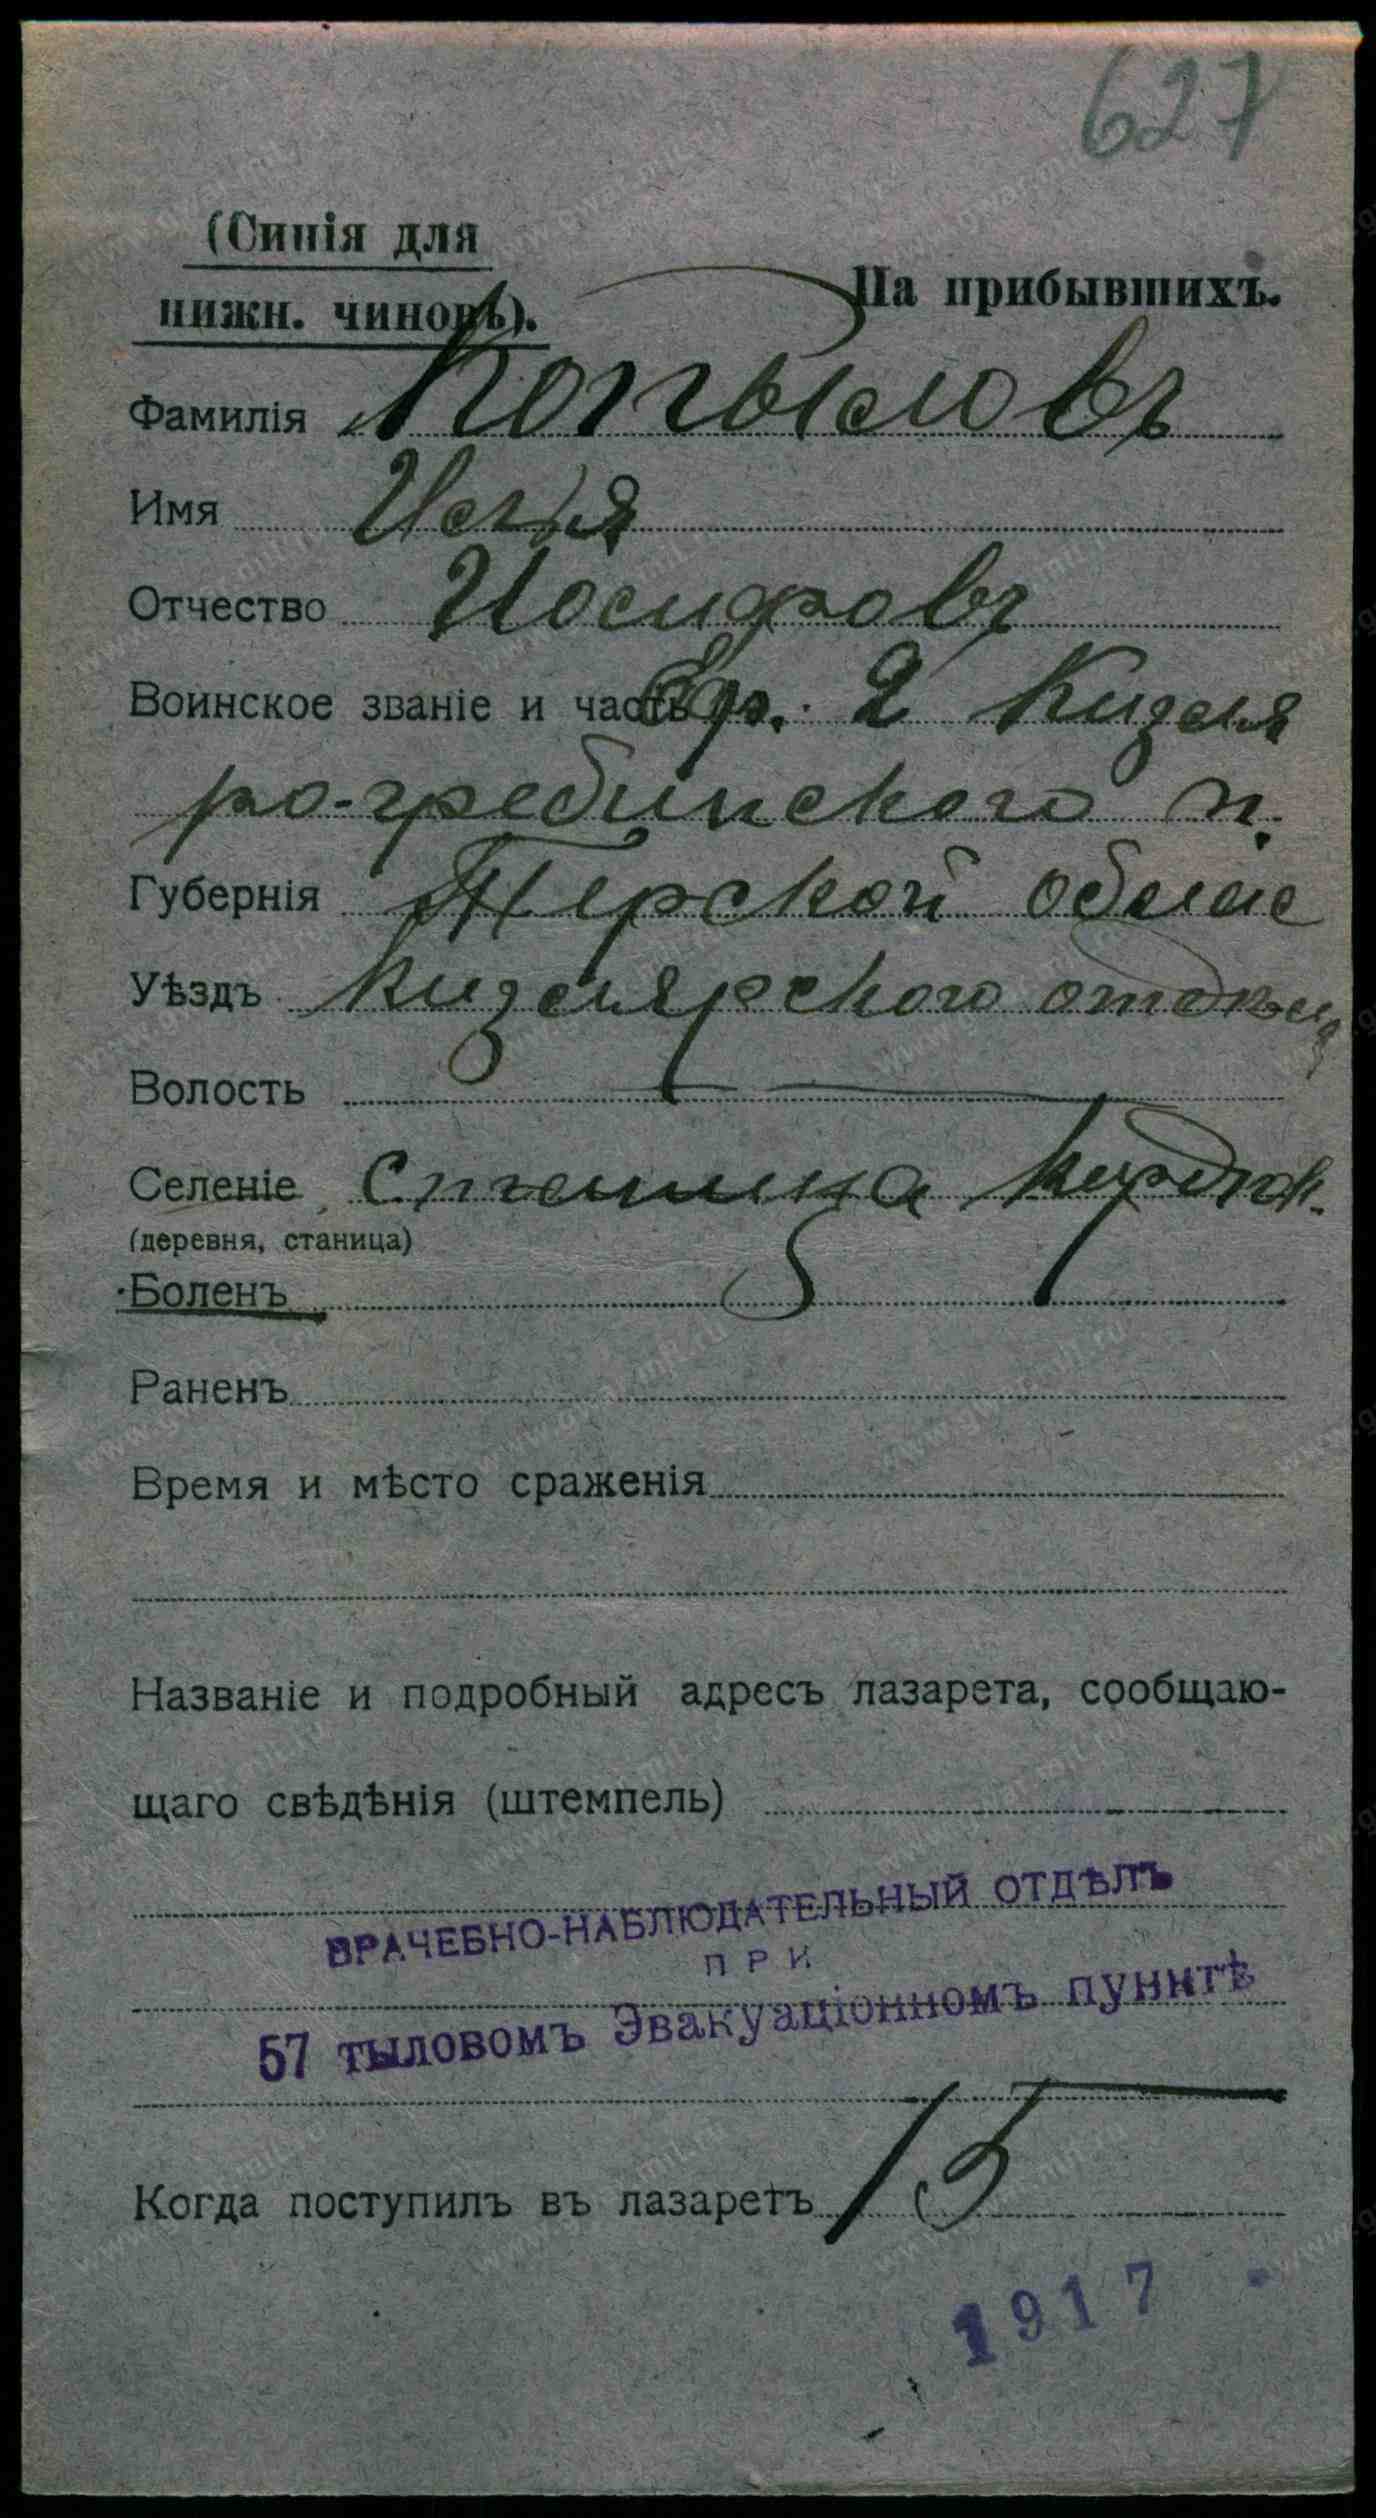 627
(Синія для
нижн. чиновъ).
На прибывшихъ.
Фамилія Копыловъ
Имя Илья
Отчество Иосифовъ
Воинское званіе и часть Ефр. 2 Кизля
ро-гребинского п.
Губернія Терской облас
Уѣздъ Кизлярского отдѣла
Волость —
Селеніе Станица Курдюк.
(деревня, станица)
Боленъ
Раненъ
Время и мѣсто сраженія
Названіе и подробный адресъ лазарета, сообщаю-
щаго свѣдѣнія (штемпель)
ВРАЧЕБНО-НАБЛЮДАТЕЛЬНЫЙ ОТДѢЛЪ
ПРИ
57 тыловомъ Эвакуаціонномъ пунктѣ
Когда поступилъ въ лазаретъ
1917